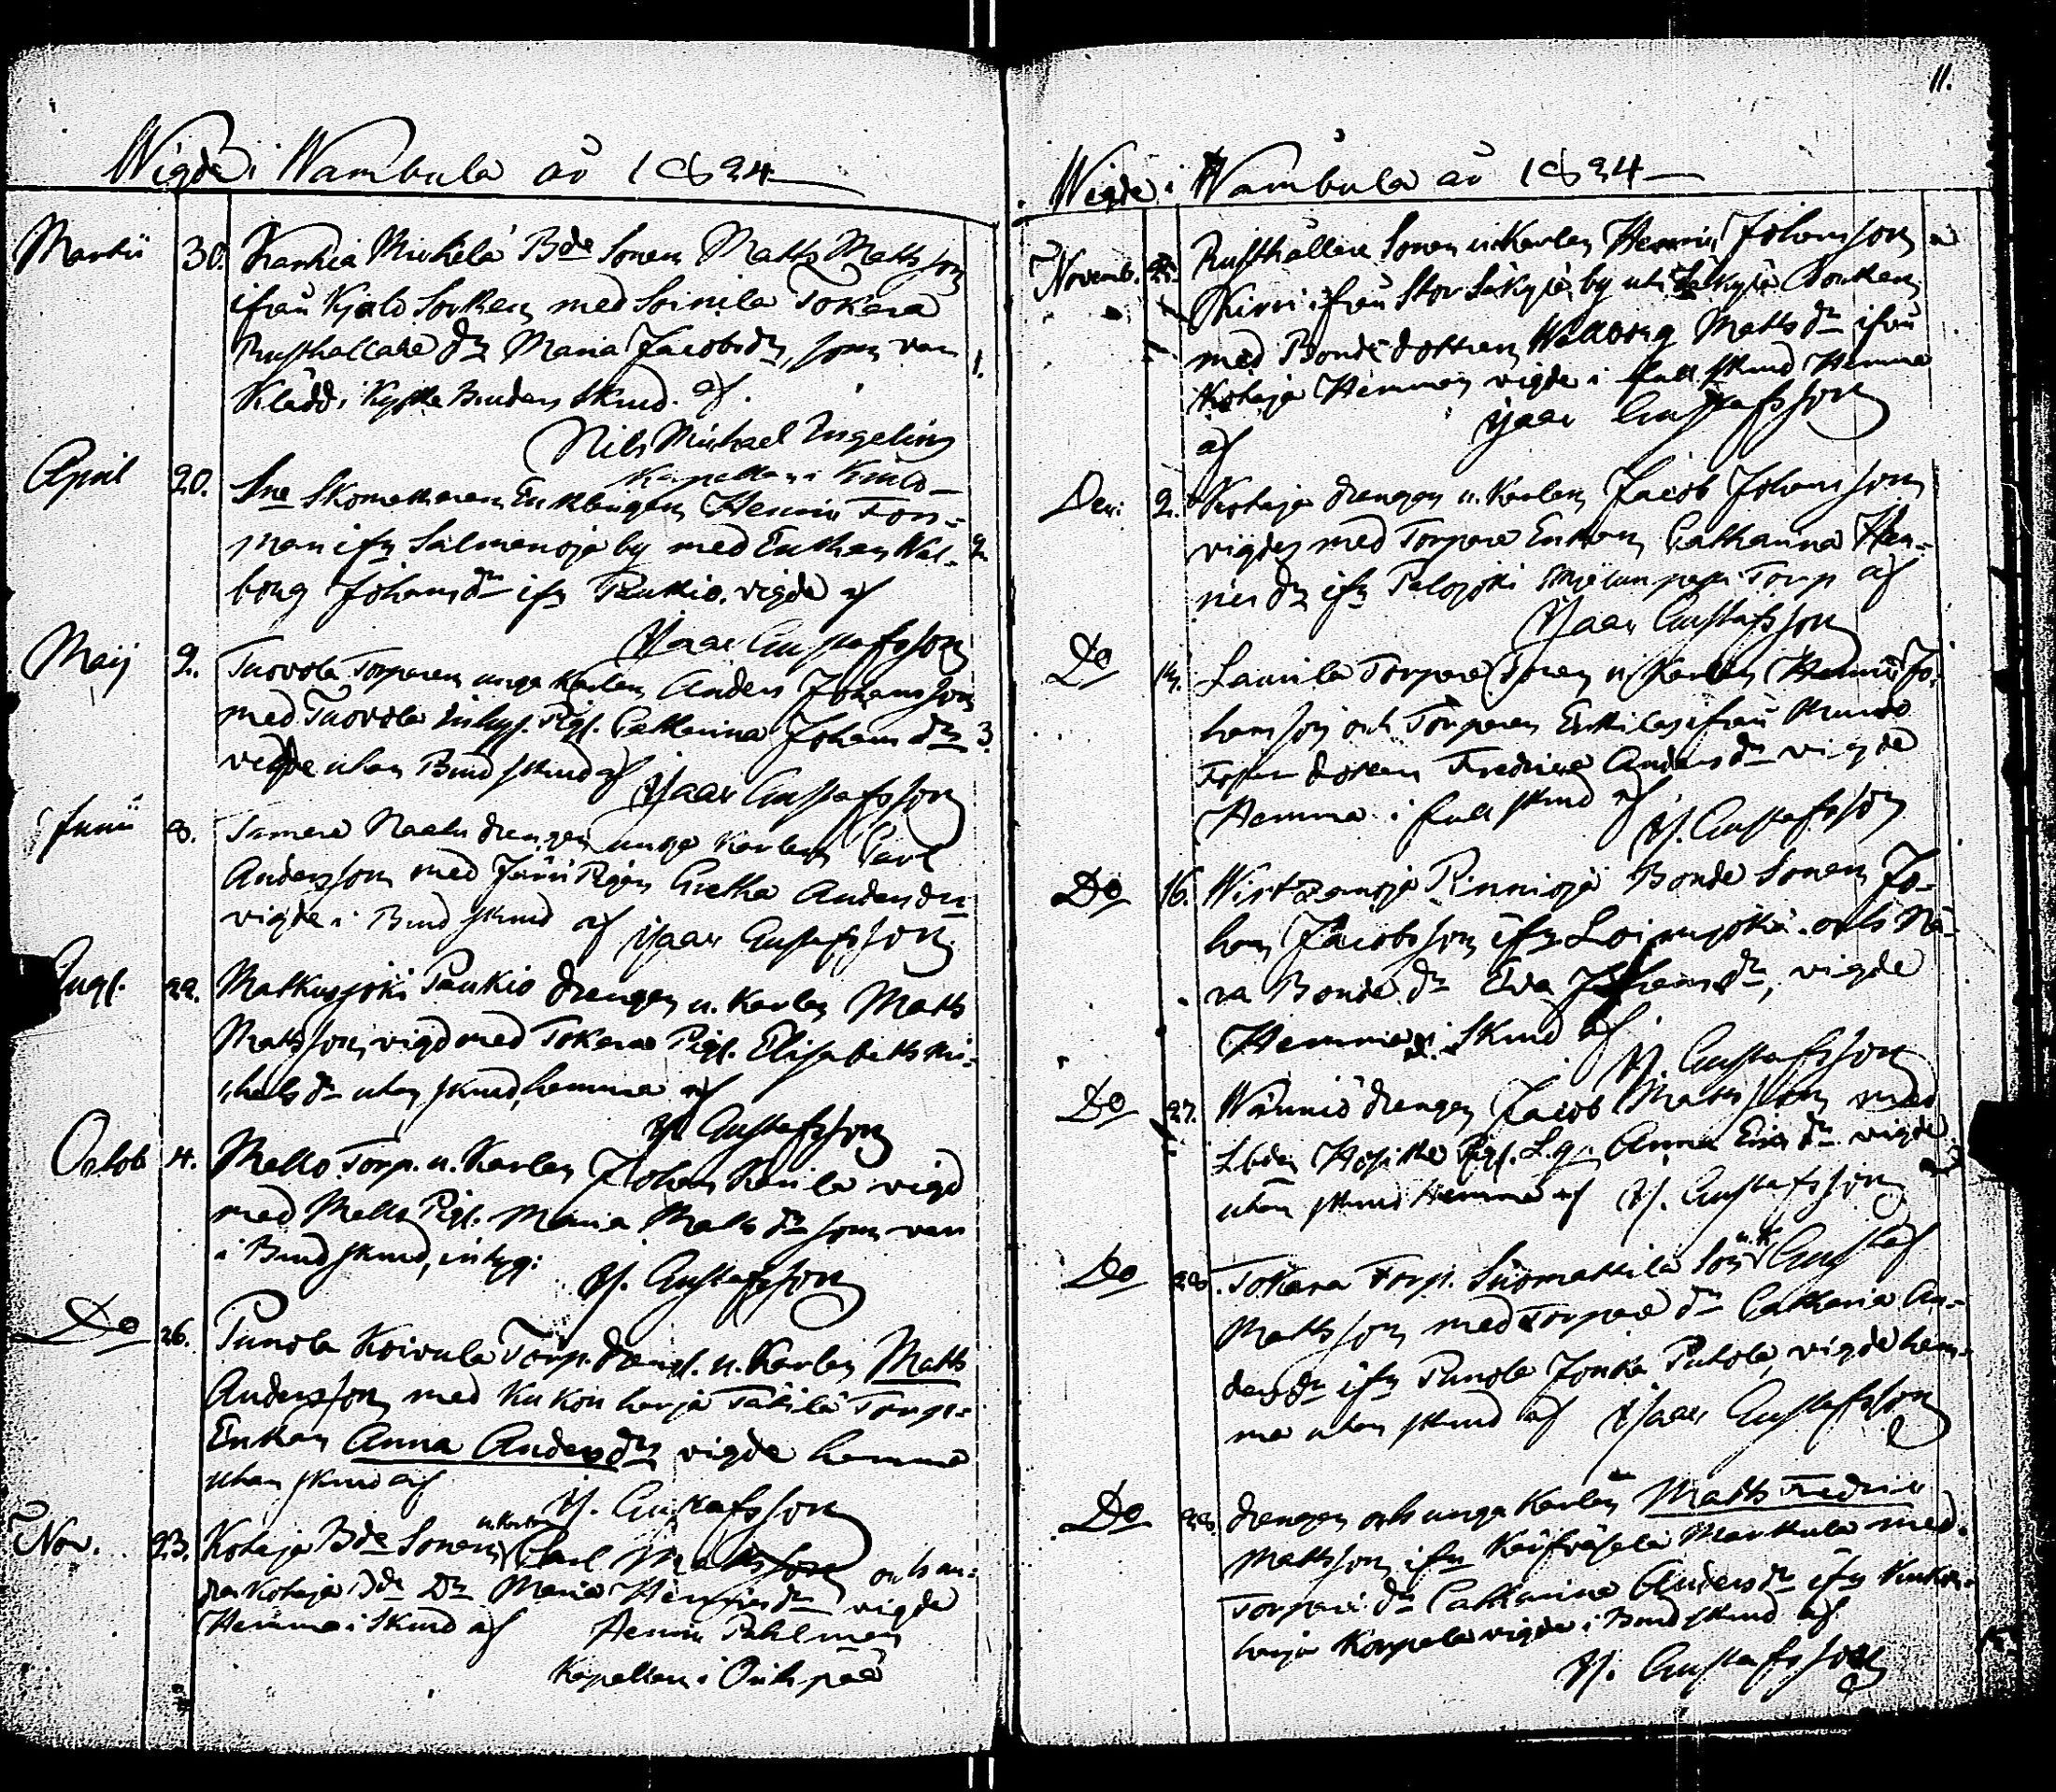 Wigde i Wambula åv 1824
Martii 30. Karhia Mickelä Bde Sonen Matts Mattsson
ifrån Kjulo Socken med Soinila Tokara
Rusthållare dn Maria Jacobsdn, som var 1.
Klädd i Kyrko Brudens Skrud. af.
Nils Michael Ingelius
Kapellan i Kiulo
April 20. Sne Skomakaren Enklingen Henric Fors-
man ifn Salmenoja by med Enkan Wal- 2
borg Johansdn ifn Rutkio. vigde af
Isaac Gustafsson
Maij 2. Tuovola Torparen unga Karlen Anders Johansson
med Tuovola Inhys. Pig. Catharina Johansdn 3.
vigde utan Brudskrud af Isaac Gustafsson
Junii 8. drengen unga Karlen Carl
Andersson med Pigan Gretha Andersdn
vigde i Brud skrud af Isaac Gustafsson
Augs. 22. Matkusjoki Paukio drengen u. Karlen Matts
Mattsson, vigd med Tokara Pigs. Elisabeth Mi-
chelsdn utan skrud, hemma af
Is. Gustafsson
Octob 4. Mello Torp. u. Karlen Johan vigd
med Mello Pigs. Maria Matsdn som var
i Brudskrud, inhyg: Is. Gustafsson
Do 26. Punola Koivula Torp. drengs. u. Karlen Matts
Andersson, med Kukonharja Täkilä Torp.
Enkan Anna Andersdn vigde hemma
utan skrud af
Is. Gustafsson
Nov. 23. Kohaja Bde Sonen u. Karlen Carl Mattsson och an-
dra Kohaja Bde Dn Maria Henricsdn vigde
Hemma i Skrud af Henric Pahlman
Kapellan i Oripää
11.
Wigde i Wambula åv 1824
Novemb. Rusthållare Sonen u. Karlen Henric Johansson
ifrån Stor Säkylä by uti Säkylä Socken
med Bonde dottren Walborg Mattsdn ifrån
Kohaja Hemman vigde i full skrud Hemma
af Isaac Gustafsson
Dec: 2. Kohaja drengen u. Karlen Jacob Johansson
vigdes med Torpare Enkan Catharina Hen-
ricsdn ifn Palojoki Torp af
Isaac Gustafsson
Do 14. Laurila Torpare Sonen u. Karlen Henric Jo-
hansson och Torparen ifrån
dottren Fredrica Andersdn vigde
Hemma i full skrud af
Is. Gustafsson
Do 16. Wirtzanoja Rinnioja Bonde Sonen Jo-
han Jacobsson ifn Loimijoki och Nä-
ra Bonde dn Eva Johansdn, vigde
Hemma i Skrud af
Is. Gustafsson
Do 27. Wänniö drengen Jacob Matsson med
Pigs. Anna Ericsdn vigde
utan skrud Hemma af Is. Gustafsson
Do 28. Tokara Torp. Suomattila Son u.K. Gustaf
Mattsson med Torpare dn Catharia An-
dersdn ifn Punola Jonka Puhola, vigde hem-
ma utan skrud af Isaac Gustafsson
Do 28. drengen och unga Karlen Matts Fredric
Mattsson ifn Markula med
Torpare dn Catharina Andersdn ifn Kukon-
harja Korpela vigde i Brudskrud af
Is. Gustafsson